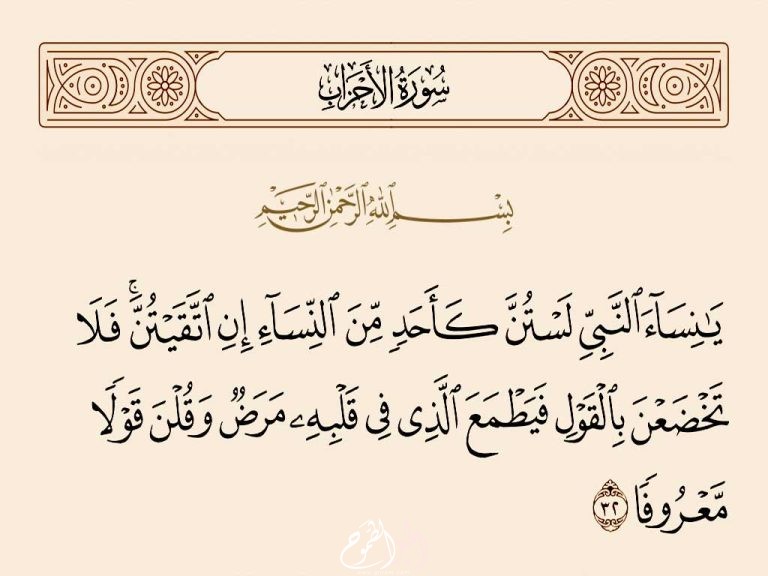 سُورَةُ الأَحْزَابِ
بِسْمِ ٱللَّهِ ٱلرَّحْمَٰنِ ٱلرَّحِيمِ
يَٰنِسَآءَ ٱلنَّبِيِّ لَسْتُنَّ كَأَحَدٍ مِّنَ ٱلنِّسَآءِ إِنِ ٱتَّقَيْتُنَّۚ فَلَا
تَخْضَعْنَ بِٱلْقَوْلِ فَيَطْمَعَ ٱلَّذِى فِى قَلْبِهِۦ مَرَضٌ وَقُلْنَ قَوْلًا
مَّعْرُوفًا ٣٢
الطموح